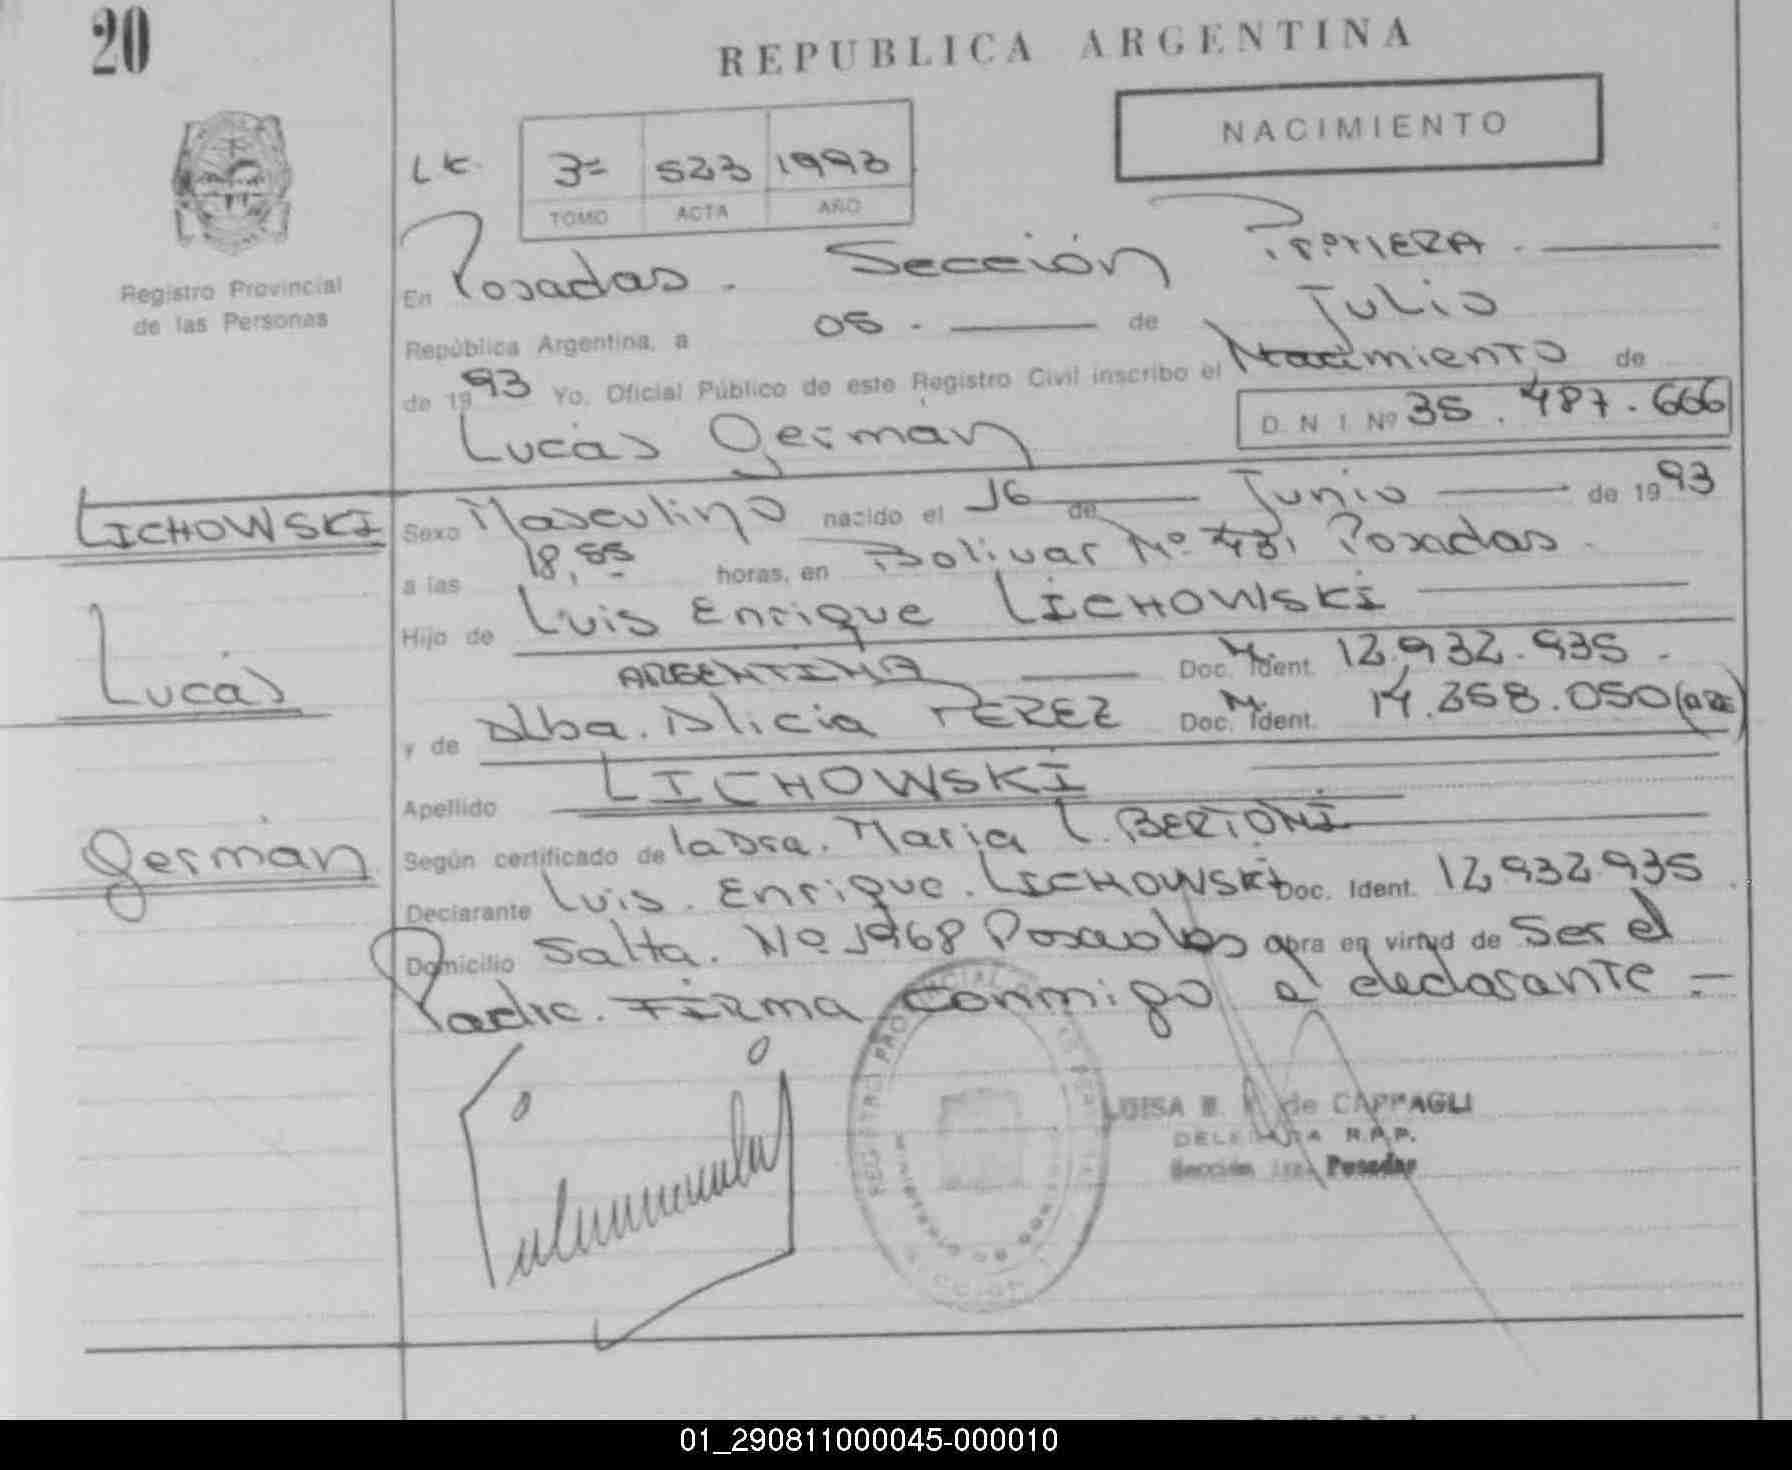 20
REPUBLICA ARGENTINA
NACIMIENTO
3ª 523 1993
TOMO ACTA AÑO
Registro Provincial
de las Personas
En Posadas. Sección PRIMERA
República Argentina, a 05. de Julio
de 1993 Yo, Oficial Público de este Registro Civil inscribo el Nacimiento de
Lucas German
D N I Nº 35.487.666
LICHOWSKI
Lucas
German
Sexo Masculino nacido el 16 de Junio de 1993
a las 18,55 horas, en Bolivar Nº 431 Posadas.
Hijo de Luis Enrique LICHOWSKI
ARGENTINA Doc. Ident. 12.932.935.
y de Alba. Alicia PEREZ Doc. Ident. 14.368.050
Apellido LICHOWSKI
Según certificado de la Dra. Maria L. BERTONI
Declarante Luis. Enrique. LICHOWSKI Doc. Ident. 12.932.935
Domicilio Salta. Nº 1968 Posadas obra en virtud de Ser el
Padre. FIRMA conmigo el declarante =
REGISTRO PROVINCIAL DE LAS PERSONAS
LUISA de CAPPAGLI
DELEGADA R.P.P.
Sección 1ra. Posadas
01_290811000045-000010